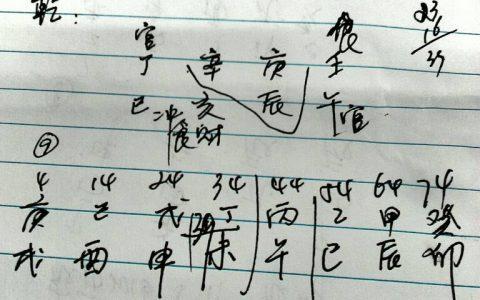 乾:
官 23
丁 辛 庚 壬 16
巳 亥 辰 午官 37
冲 财
4 14 24 34 44 54 64 74
庚 己 戊 丁 丙 乙 甲 癸
戌 酉 申 未 午 巳 辰 卯